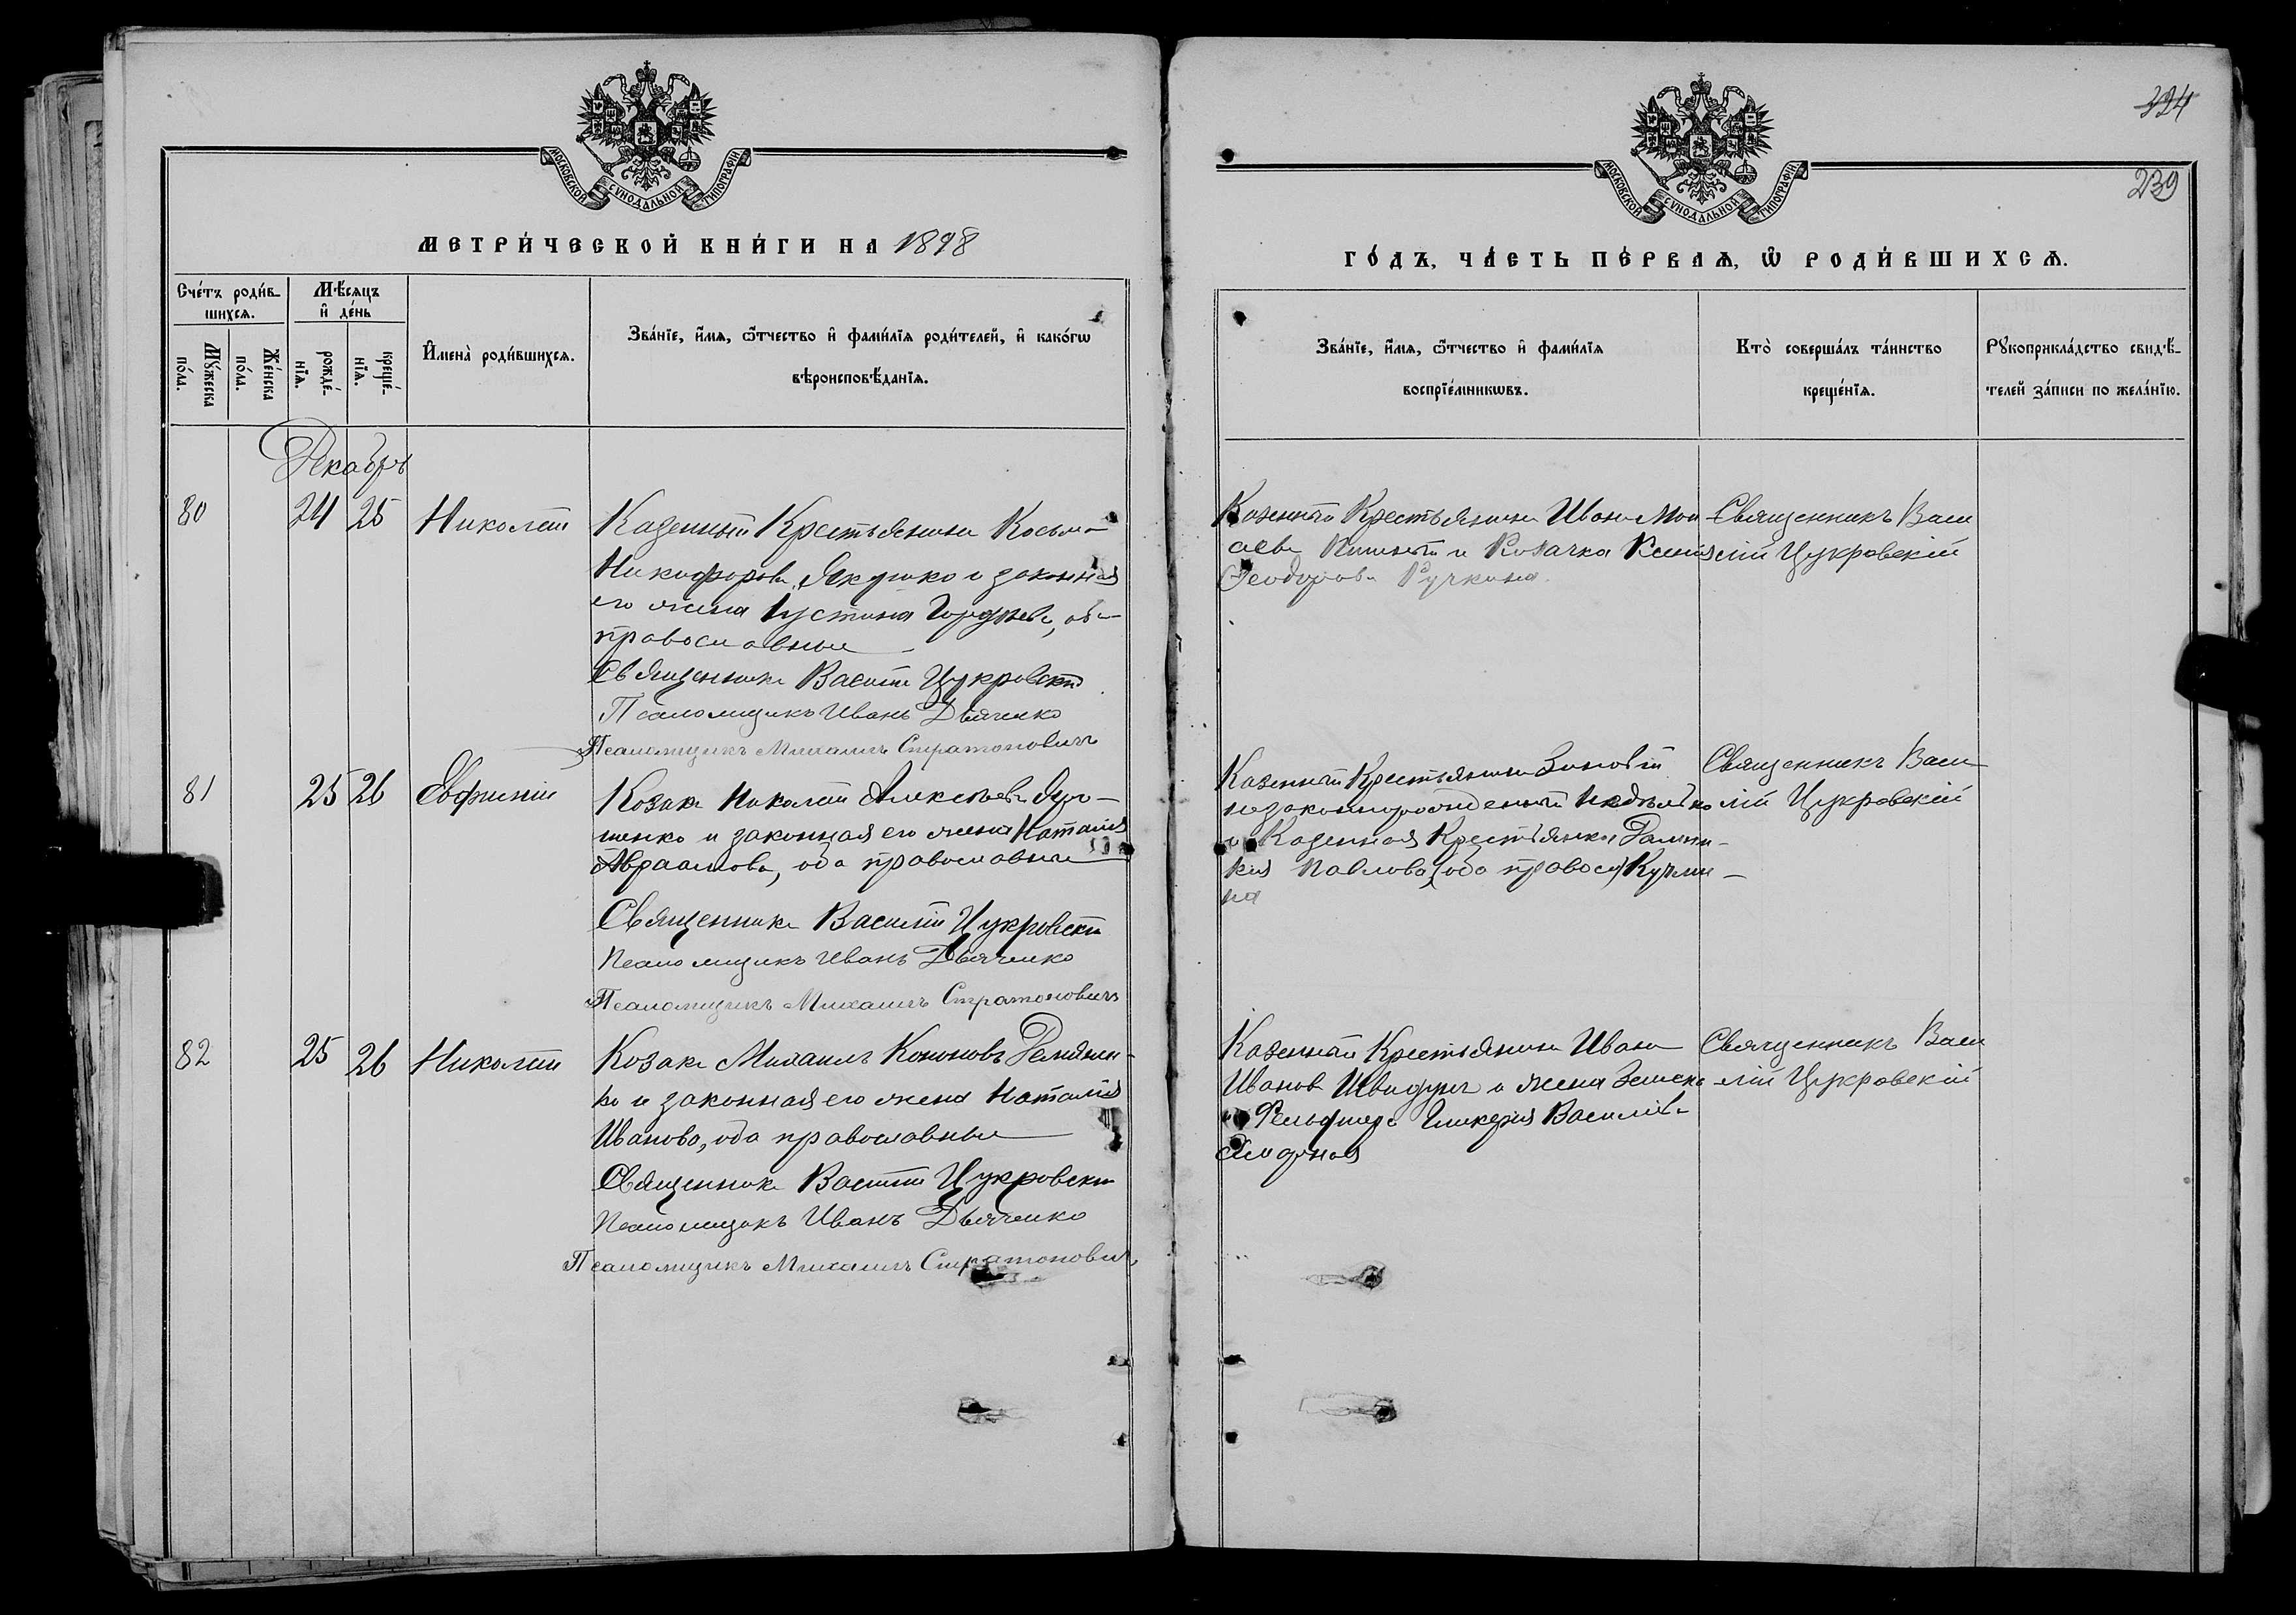 МОСКОВСКОЙ СѴНОДАЛЬНОЙ ТИПОГРАФІИ
МЕТРИ́ЧЕСКОЙ КНИ́ГИ НА 1898
Сче́тъ роди́в-
шихсѧ.
Мѣ́сѧцъ
и҆ де́нь
Мꙋ́жеска
по́ла.
Же́нска
по́ла.
рожде́-
нїѧ.
креще́-
нїѧ.
И҆мена̀ роди́вшихсѧ.
Зва́нїе, и҆́мѧ, ѻ҆́тчество и҆ фами́лїѧ роди́телей, и҆ како́гѡ
вѣроисповѣ́данїѧ.
Декабрь
80 24 25 Николай
Казенный Крестьянинъ Косьма
Никифоровъ Якушко и законная
его жена Іустина Гордѣева, оба
православные
Священникъ Василій Цукровскій
Псаломщикъ Иванъ Дьяченко
Псаломщикъ Михаилъ Стратоновичъ
81 25 26 Евфимій
Козакъ Николай Алексѣевъ
и законная его жена Наталія
Авраамова, оба православные
Священникъ Василій Цукровскій
Псаломщикъ Иванъ Дьяченко
Псаломщикъ Михаилъ Стратоновичъ
82 25 26 Николай
Козакъ Михаилъ Кононовъ
и законная его жена Наталія
Иванова, оба православные
Священникъ Василій Цукровскій
Псаломщикъ Иванъ Дьяченко
Псаломщикъ Михаилъ Стратоновичъ
324
239
МОСКОВСКОЙ СѴНОДАЛЬНОЙ ТИПОГРАФІИ
ГО́ДЪ, ЧА́СТЬ ПЕ́РВАѦ, Ѡ҆ РОДИ́ВШИХСѦ.
Зва́нїе, и҆́мѧ, ѻ҆́тчество и҆ фами́лїѧ
воспрїе́мникѡвъ.
Кто̀ соверша́лъ та́инство
креще́нїѧ.
Рꙋкоприкла́дство свидѣ́-
телей за́писи по жела́нїю.
Казенный Крестьянинъ Иванъ
и Козачка
Феодорова Ручкина
Священникъ Васи
лій Цукровскій
Казенный Крестьянинъ Зиновій
незаконнорожденный
и Казенная Крестьянка
Павлова (оба правосл)
на
Священникъ Васи
лій Цукровскій
Казенный Крестьянинъ Иванъ
Ивановъ и жена Земска
Фельдшера Гликерія Василіева
Священникъ Васи
лій Цукровскій